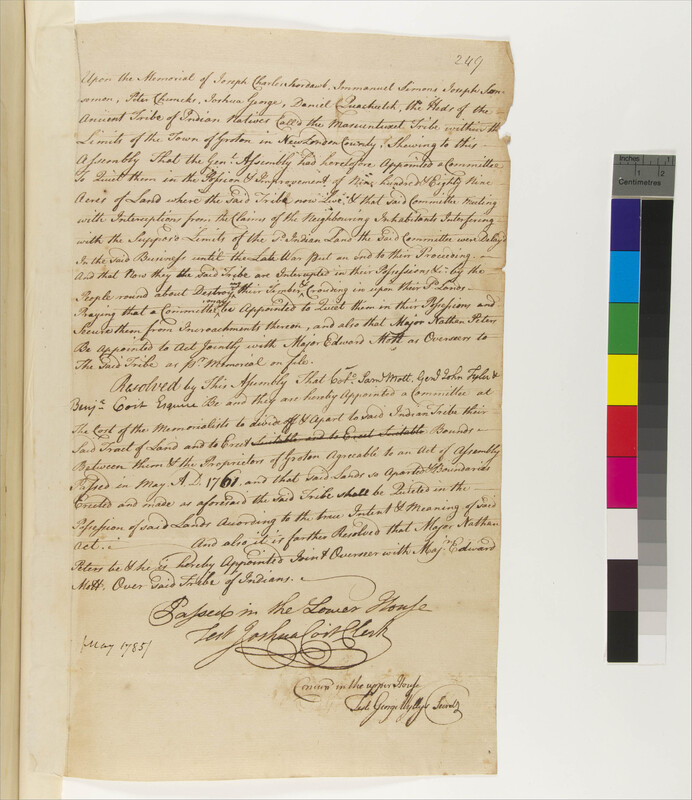 249
Upon the Memorial of Joseph Charles Scordawb, Immanuel Simons Joseph Sam-
somon, Peter Chuncks, Joshua George, Daniel Quacheets, the Heds of the
Ancient Tribe of Indian Natives Call'd the Massuntuxet Tribe within the
Limits of the Town of Groton in New London County; Shewing to this
Assembly That the Genl. Assembly had heretofore Appointed a Committee
To Quiett them in the Possion & Improvement of Nine hundred & Eighty Nine
Acres of Land where the Said Tribe now Live & that Said Committee meeting
with Interceptions from the Claims of the Neighbouring Inhabitants Interfering
with the Suppos'd Limits of the Sd. Indian Land the Said Committee were Delay'd
In the Said Business until the Late War put an End to their Proceding. –
And that Now they the Said Tribe are Interupted in their Possessions by the
People round about Destroying their Timber & Crouding in upon their Sd. Lands. –
Praying that a Committee may be Appointed to Quiet them in their Possessions and
Secure them from Incroachments thereon, and also that Major Nathan Peters
Be Appointed to Act Jointly with Major Edward Mott as Overseers to
The Said Tribe as pr. Memorial on file.
Resolved by This Assembly That Colo. Saml. Mott, Genl. John Tyler &
Benjn. Coit Esquire Be and they are hereby Appointed a Committee at
The Cost of the Memorialists to divide off & Apart to Said Indian Tribe their
Said Tract of Land and to Erect Suitable and to Erect Suitable Bounds
Between them & the Proprietors of Groton Agreable to an Act of Assembly
Passed in May A.D. 1761. and that Said Lands so Aparted & Boundaries
Erected and made as aforesaid the Said Tribe shall be Quieted in the
Possession of said Lands According to the true Intent & Meaning of Said
Act. – And also it is farther Resolved that Major Nathan
Peters be & he is hereby Appointed Joint Overseer with Majr. Edward
Mott. Over Said Tribe of Indians. –
Passed in the Lower House
Test Joshua Coit Clerk
[May 1785]
Concur'd in the upper House
Test George Wyllys Secret'y
Inches 1
1 2
Centimetres